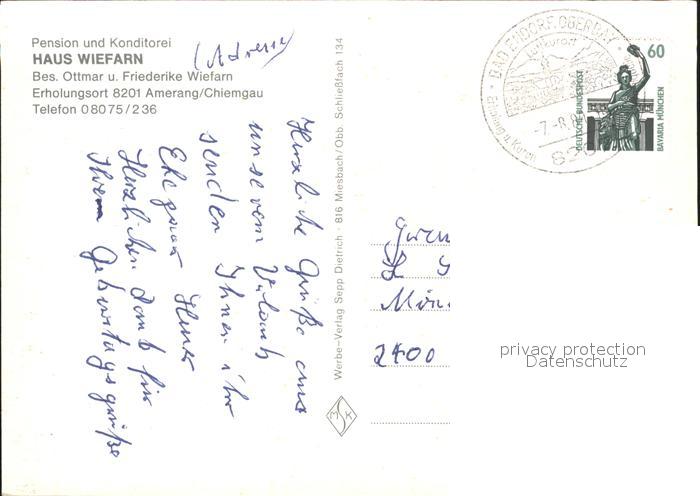 Pension und Konditorei
HAUS WIEFARN
Bes. Ottmar u. Friederike Wiefarn
Erholungsort 8201 Amerang/Chiemgau
Telefon 08075/236
(Adresse)
Herzliche Grüße aus
unserem Urlaub
senden Ihnen ihr
Ehepaar
Herzlichen Dank für
Ihrem Geburtstagsgrüße
Werbe-Verlag Sepp Dietrich · 816 Miesbach/Obb. Schließfach 134
BAD ENDORF, OBERBAY
Luftkurort
-7.-8.
60
DEUTSCHE BUNDESPOST
BAVARIA MÜNCHEN
2400
privacy protection
Datenschutz